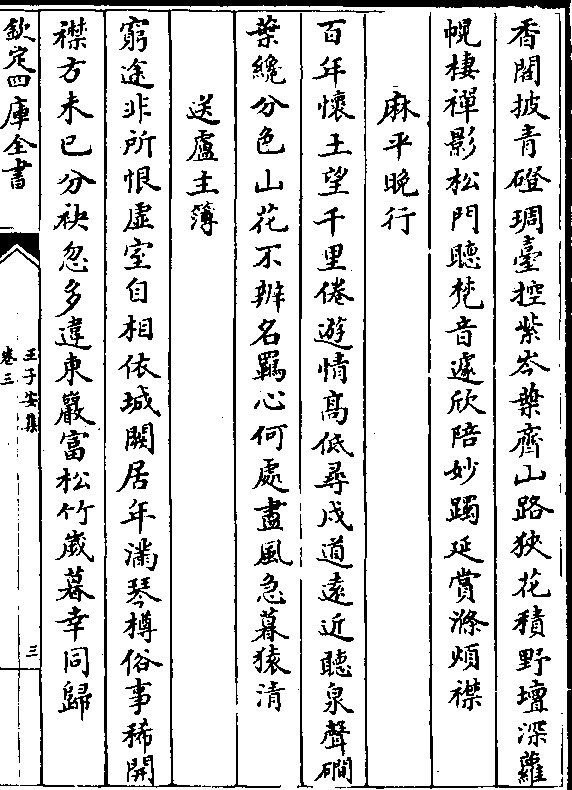 香閣披青磴琱臺控紫岑葉齊山路狹花積野壇深蘿
幌棲禪影松門聽梵音遽欣陪妙躅延賞滌煩襟
麻平晚行
百年懷土望千里倦遊情高低尋戍道遠近聽泉聲磵
葉纔分色山花不辨名羈心何處盡風急暮猿清
送盧主簿
窮途非所恨虛室自相依城闕居年滿琴樽俗事稀開
襟方未已分袂忽多違東巖富松竹歲暮幸同歸
欽定四庫全書
王子安集
卷三
三